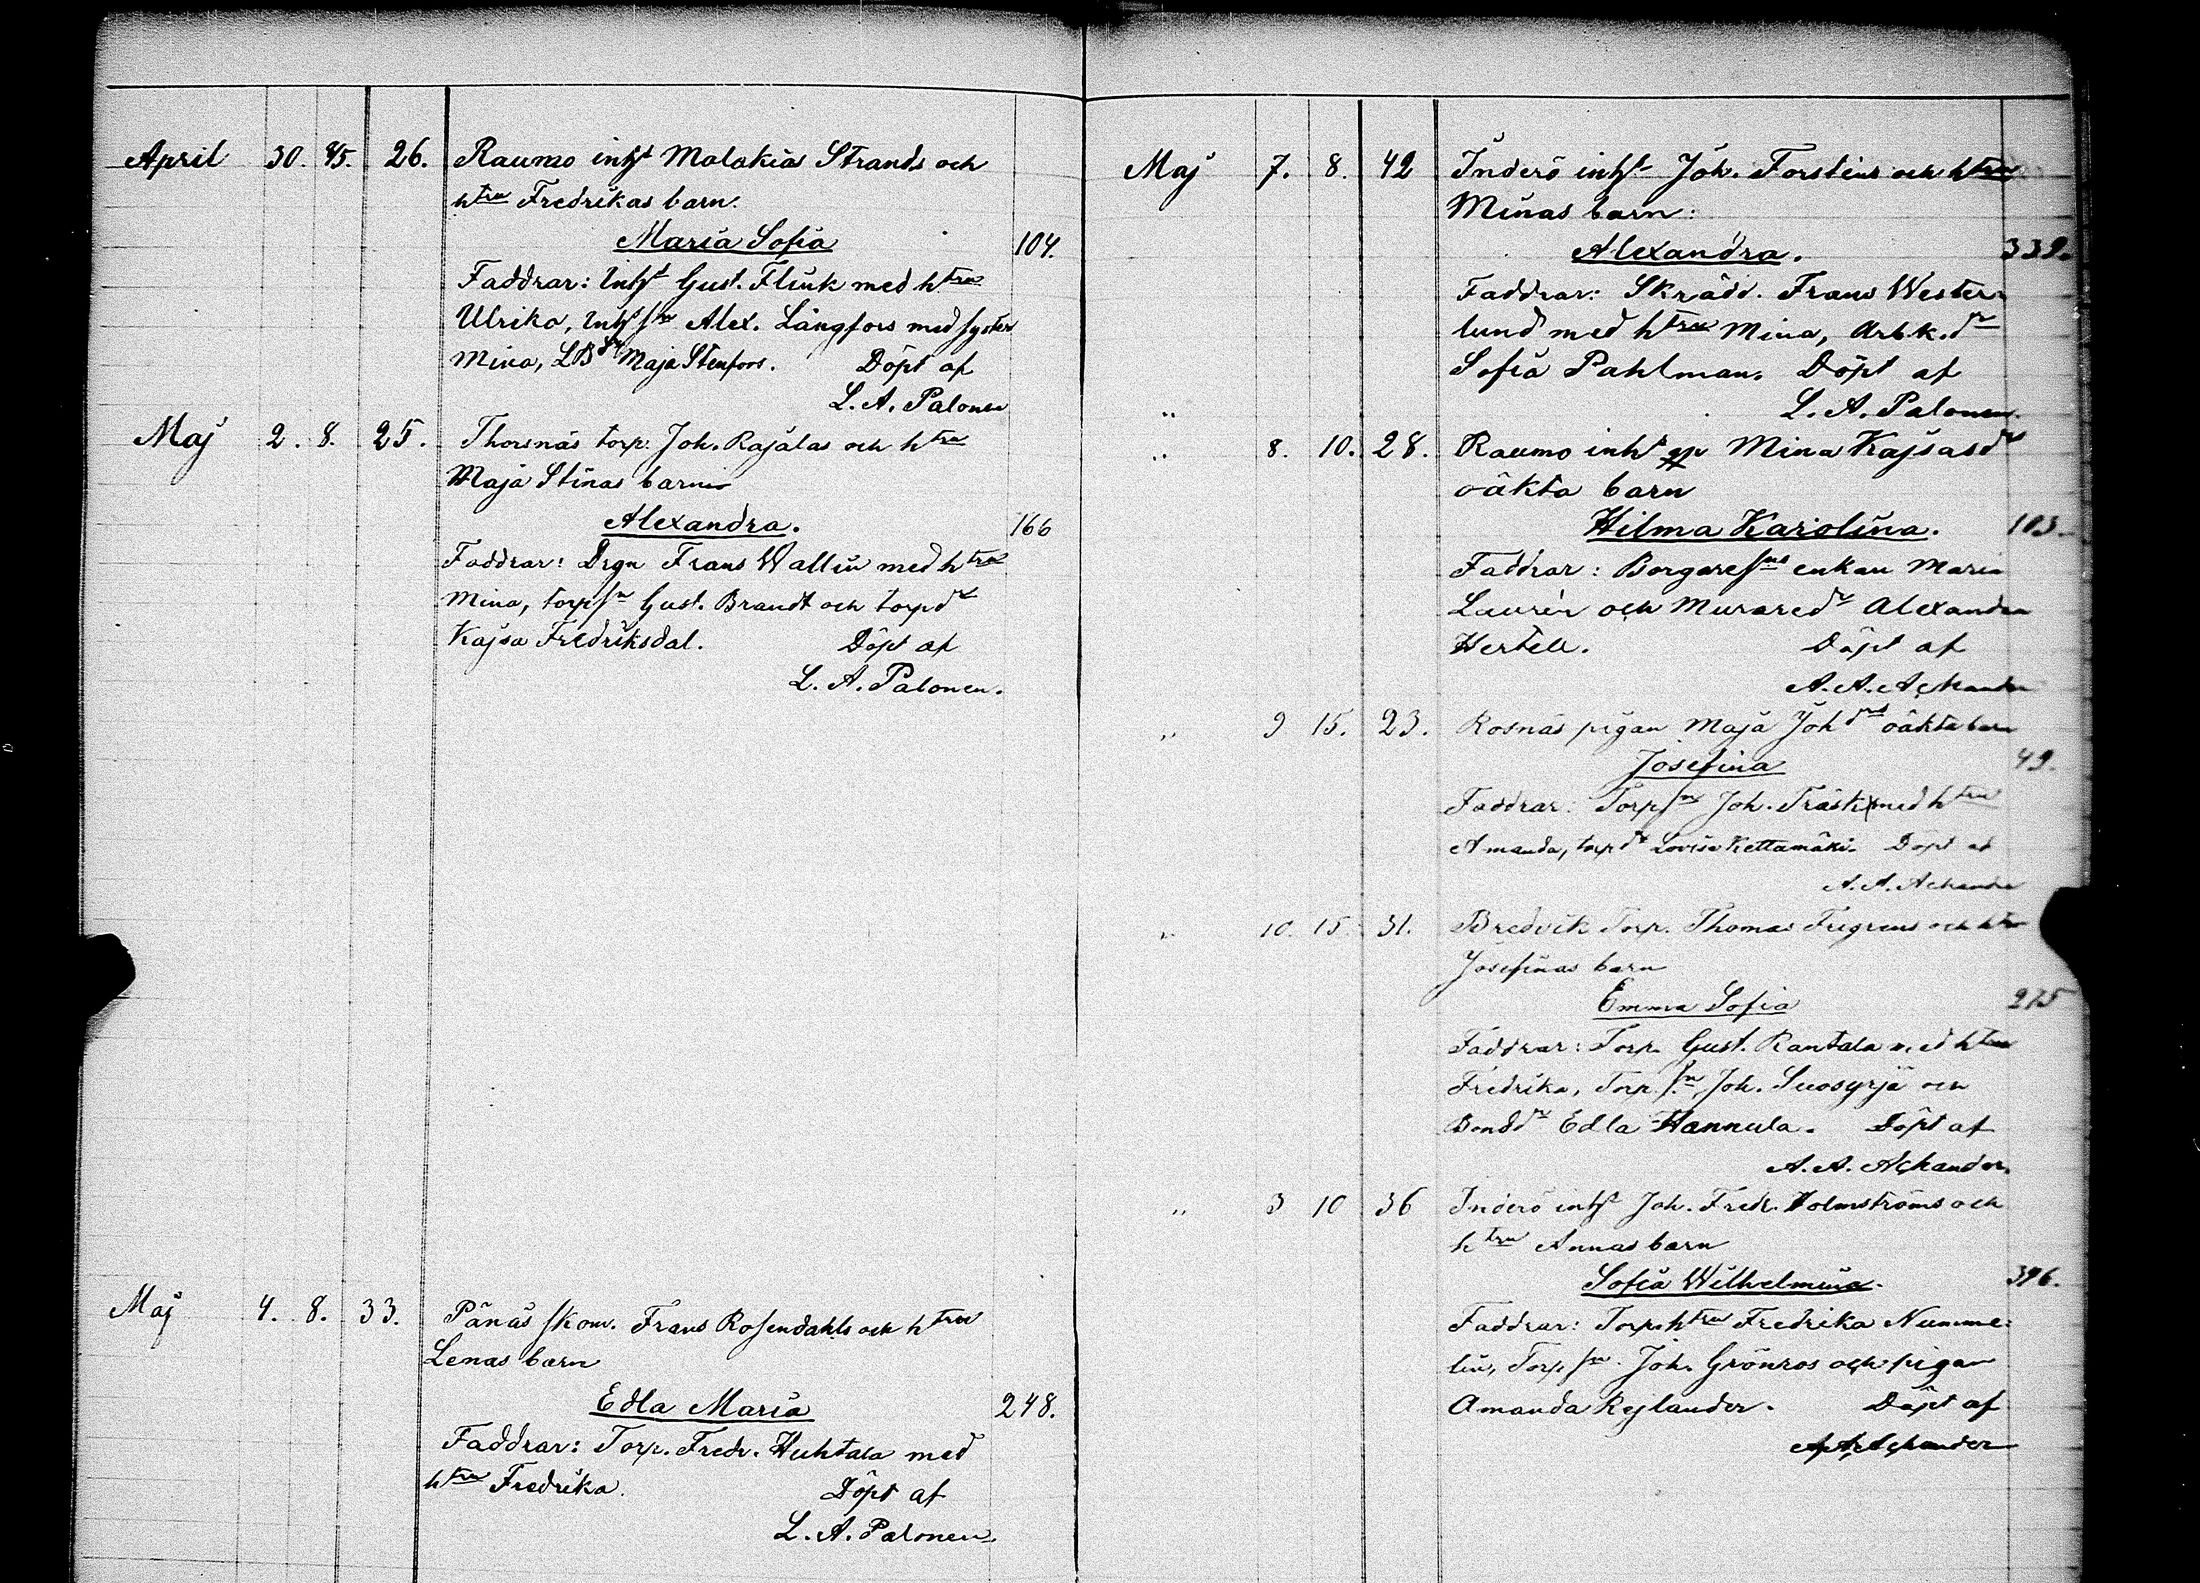 April 30. 4/5. 26. Raumo inhs Malakias Strands och
htru Fredrikas barn.
Maria Sofia 104.
Faddrar: Inhs Gust. Flink med htru
Ulrika, Inhs sn Alex. Långfors med syster
Mina, Maja Stenfors. Döpt af
L. A. Palonen
Maj 2. 8. 25. Thorsnäs torp. Joh. Rajalas och htru
Maja Stinas barn
Alexandra. 166
Faddrar: Drgn Frans Wallin med htru
Mina, torp sn Gust. Brandt och torp dr
Kajsa Fredriksdal. Döpt af
L. A. Palonen.
Maj 4. 8. 33. Pänäs skom. Frans Rosendahls och htru
Lenas barn
Edla Maria 248.
Faddrar: Torp. Fredr. Huhtala med
htru Fredrika. Döpt af
L. A. Palonen
Maj 7. 8. 42 Inderö inhs Joh. Forsteins och htru
Minas barn:
Alexandra. 339.
Faddrar: Skrädd. Frans Wester-
lund med htru Mina, Arbk. dr
Sofia Pahlman. Döpt af
„ L. A. Palonen.
„ 8. 10. 28. Raumo inhs Mina Kajsasdrs
oäkta barn
Hilma Karolina. 103.
Faddrar: Borgare sns enkan Maria
Laurén och Murare dr Alexandra
Hertell. Döpt af
A. A. Ackander
„ 9 15. 23. Rosnäs pigan Maja Joh drs oäkta barn
Josefina 49.
Faddrar: Torp sn Joh. Träsk med htru
Amanda, torp dr Lovisa Kettamäki. Döpt af
A. A. Ackander
„ 10. 15. 31. Bredvik Torp. Thomas Frigrens och htru
Josefinas barn
Emma Sofia 275
Faddrar: Torp. Gust. Rantala med htru
Fredrika, Torp. sn Joh. Suosyrjä och
Bond dr Edla Hannula. Döpt af
A. A. Ackander.
„ 3 10 36 Inderö inhs Joh. Fredr. Holmströms och
htru Annas barn
Sofia Wilhelmina. 396.
Faddrar: Torp. htru Fredrika Numme-
lin, Torp. sn. Joh. Grönros och pigan
Amanda Rejlander. Döpt af
A. A. Ackander